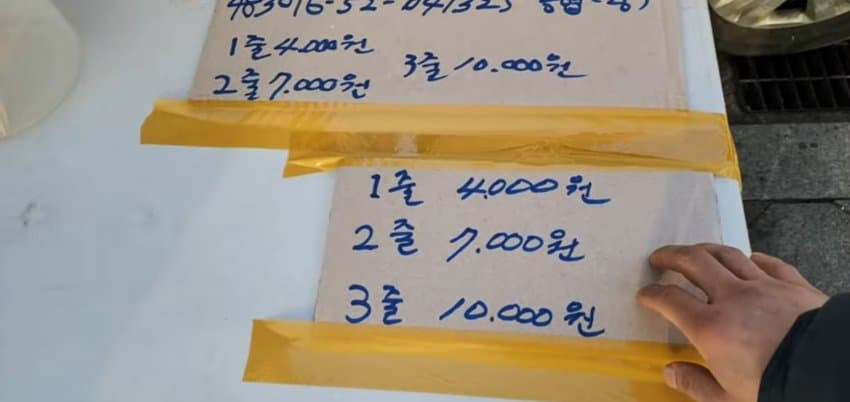 1줄 4.000원
2줄 7.000원 3줄 10.000원
1줄 4.000원
2줄 7.000원
3줄 10.000원